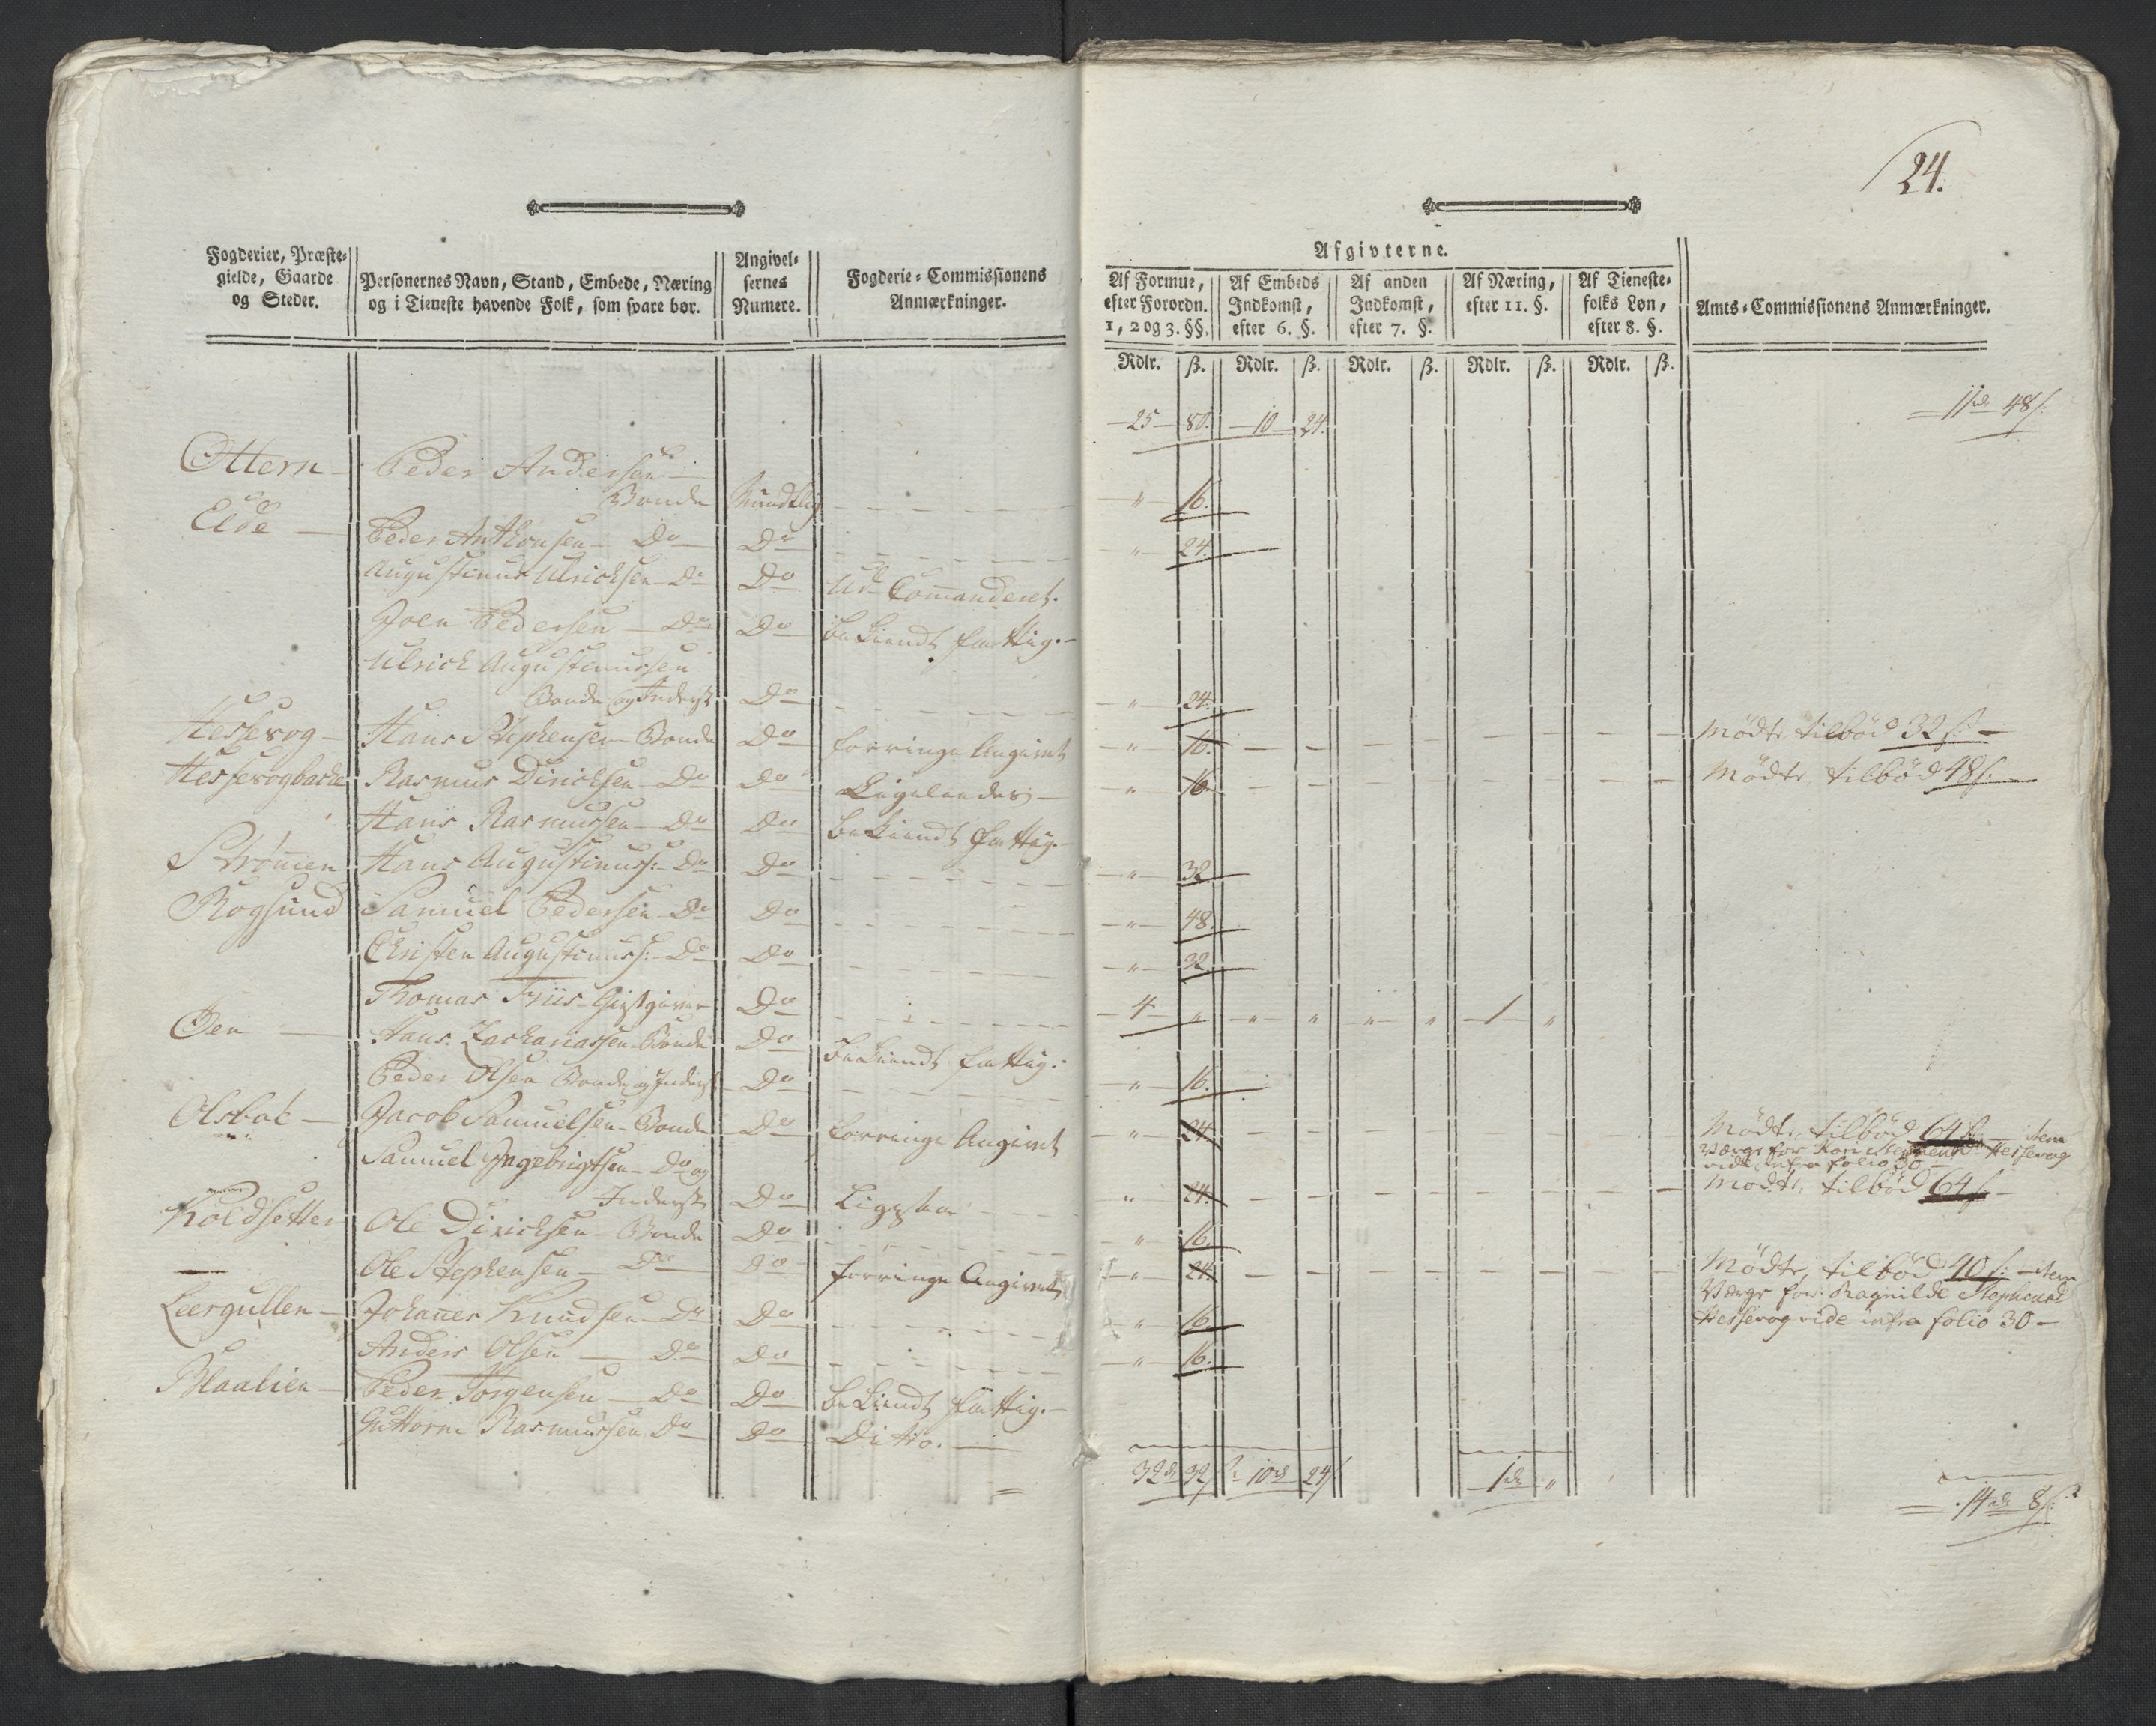 24.
Fogderier, Præste-
gielde, Gaarde
og Steder.
Personernes Navn, Stand, Embede, Næring
og i Tieneste havende Folk, som svare bør.
Angivel-
sernes
Numere.
Fogderie-Commissionens
Anmærkninger.
Afgivterne.
Af Formue,
efter Forordn.
1, 2 og 3. §§.
Af Embeds
Indkomst,
efter 6. §.
Af anden
Indkomst,
efter 7. §.
Af Næring,
efter 11. §.
Af Tieneste-
folks Løn,
efter 8. §.
Amts-Commissionens Anmærkninger.
Rdlr. | ß. | Rdlr. | ß. | Rdlr. | ß. | Rdlr. | ß. | Rdlr. | ß.
— 25 — 80. — 10 — 24. = 11 rd 48 ß.
Ottern — Peder Andersen —
Bonde Mundtlig — " — 16.
Elde — Peder Anthonsen — Do — Do — " — 24.
Augustinus Ulrichsen — Do Do Ud Commanderet.
Joen Pedersen — Do Do bekiendt fattig. —
Ulrich Augustinussen
Bonde og Inderst Do — " — 24.
Hessevog — Hans Stephensen — Bonde Do forringe Angivet — " — 16. Mødte tilbød 32 ß. —
Hessevogbakke Rasmus Dirichsen — Do Do Ligeleedes — — " — 16. Mødte, tilbød 48 ß.
Hans Rasmussen — Do Do bekiendt fattig. —
Strømen Hans Augustinuss: — Do Do — " — 32
Rogsund Samuel Pedersen — Do Do — " — 48.
Christen Augustinuss: — Do Do — " — 32
Thomas Friis — Giestgiver Do — 4 — " — " — " — " — " — 1 — "
Øen — Hans Zachariassen Bonde Do bekiendt fattig.
Peder Olsen Bonde og Inderst Do — " — 16.
Olsbak — Jacob Samuelsen — Bonde Do forringe Angivet — " — 24. Mødte, tilbød 64 ß. — item
Værge for Kari Stephensd: Hessevog
vide infra folio 30 —
Samuel Yngebrigtsen — Do og
Inderst Do Ligesaa " — 24. Mødte, tilbød 64 ß —
Koldsetter Ole Dirichsen — Bonde Do — " — 16.
Ole Stephensen — Do Do forringe Angivet — " — 24. Mødte, tilbød 40 ß: — item
Værge for Ragnilde Stephensd
Hessevog vide infra folio 30 —
Leergullen — Johanes Knudsen — Do Do — " — 16.
Anders Olsen — Do Do — " — 16.
Blaalien — Peder Torgensen — Do Do bekiendt fattig. —
Guttorm Rasmussen Do Do Ditto. —
32 rd 32 ß — 10 rd 24 ß 1 rd " = 14 rd 8 ß: